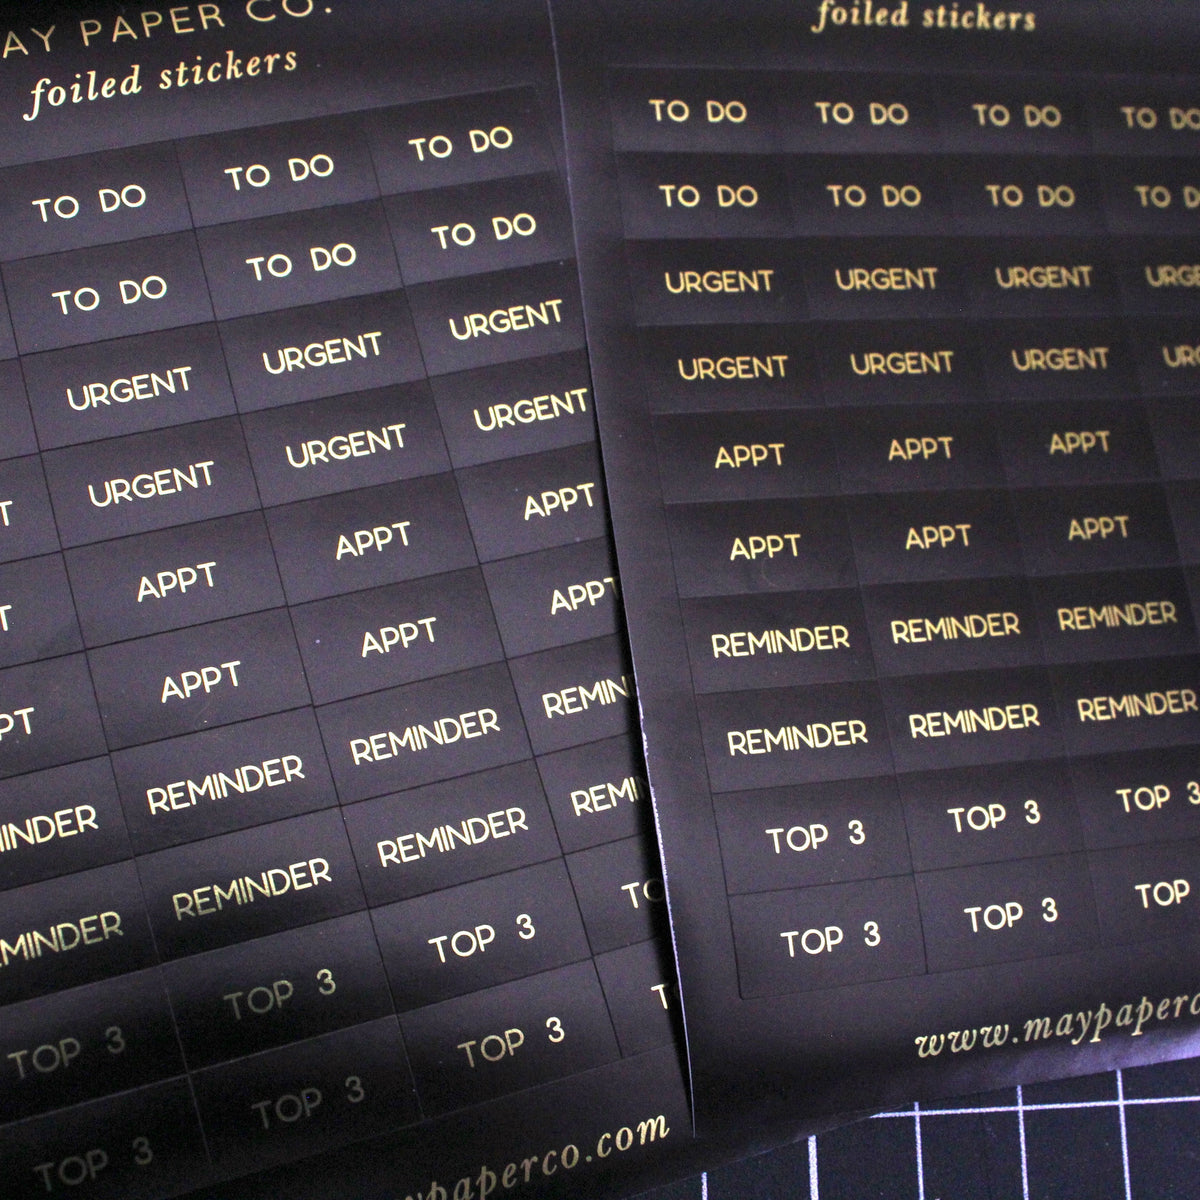 AY PAPER CO.
foiled stickers
TO DO TO DO TO DO
TO DO TO DO TO DO
URGENT URGENT URGENT
T URGENT URGENT URGENT
T APPT APPT APPT
PT APPT APPT APPT
INDER REMINDER REMINDER REMIN
MINDER REMINDER REMINDER REMI
TOP 3 TOP 3 TOP 3 TO
TOP 3 TOP 3 TOP 3 T
ypaperco.com
foiled stickers
TO DO TO DO TO DO TO DO
TO DO TO DO TO DO TO D
URGENT URGENT URGENT URGE
URGENT URGENT URGENT UR
APPT APPT APPT
APPT APPT APPT
REMINDER REMINDER REMINDER
REMINDER REMINDER REMINDER
TOP 3 TOP 3 TOP 3
TOP 3 TOP 3 TOP
www.maypaperc